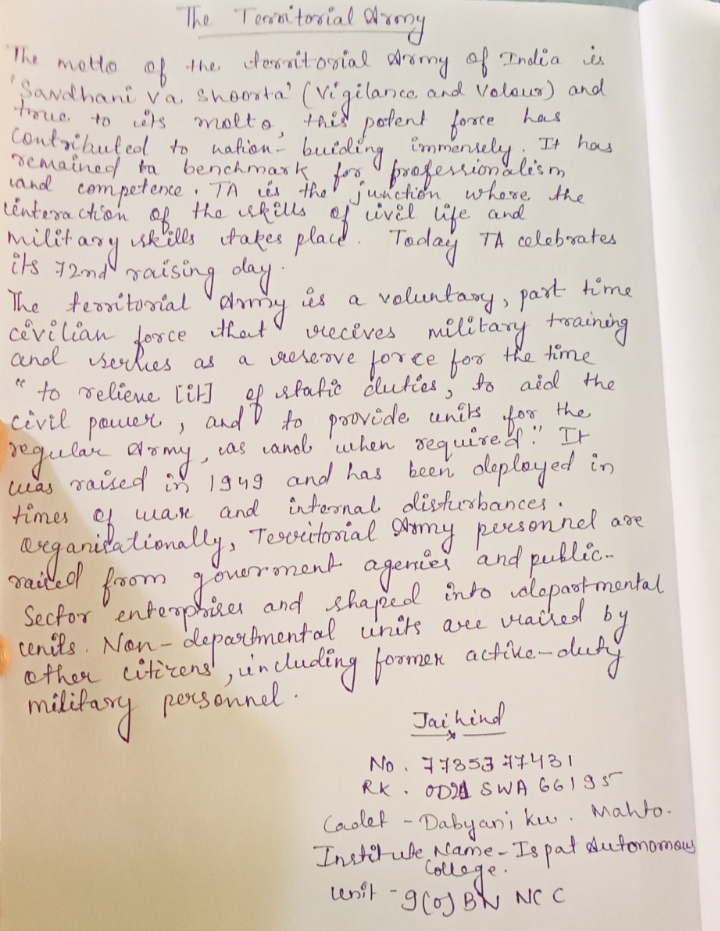 The Territorial Army
The motto of the territorial Army of India is
'Savdhani Va Shoorta' (Vigilance and Valour) and
true to its motto, this potent force has
contributed to nation-buiding immensely. It has
remained ta benchmark for professionalism
and competence. TA is the junction where the
interaction of the skills of civil life and
military skills takes place. Today TA celebrates
its 72nd raising day.
The territorial Army is a voluntary, part time
civilian force that recives military training
and serves as a reserve force for the time
"to relieve [it] of static duties, to aid the
civil power, and to provide units for the
regular Army, as and when required." It
was raised in 1949 and has been deployed in
times of war and internal disturbances.
Organisationally, Territorial Army personnel are
raised from government agencies and public-
Sector enterprises and shaped into departmental
units. Non-departmental units are raised by
other citizens, including former active-duty
military personnel.
Jai hind
No. 7735377431
RK. OD21 SWA 66195
Cadet - Dabyani ku. Mahto.
Institute Name - Ispat Autonomous
College.
Unit - 9(O) BN NCC